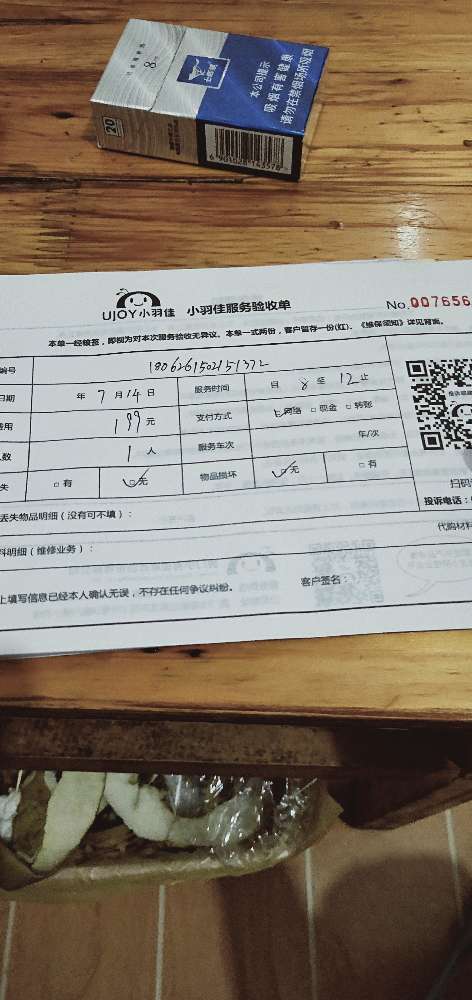 8
20
本公司提示
吸烟有害健康
请勿在禁烟场所吸烟
6 901028 143578
UJOY小羽佳 小羽佳服务验收单 No.007656
本单一经核签，即视为对本次服务验收无异议。本单一式两份，客户留存一份(红)。《维保须知》详见背面。
编号 1806261502151372
日期 年 7 月 14 日 服务时间 自 8 至 12 止
费用 199 元 支付方式 网络 □ 现金 □ 转账
人数 1 人 服务车次 年/次
失 □ 有 ☑ 无 物品损坏 ☑ 无 □ 有
扫码
丢失物品明细（没有可不填）： 投诉电话：
料明细（维修业务）： 代购材料
上填写信息已经本人确认无误，不存在任何争议纠纷。 客户签名：